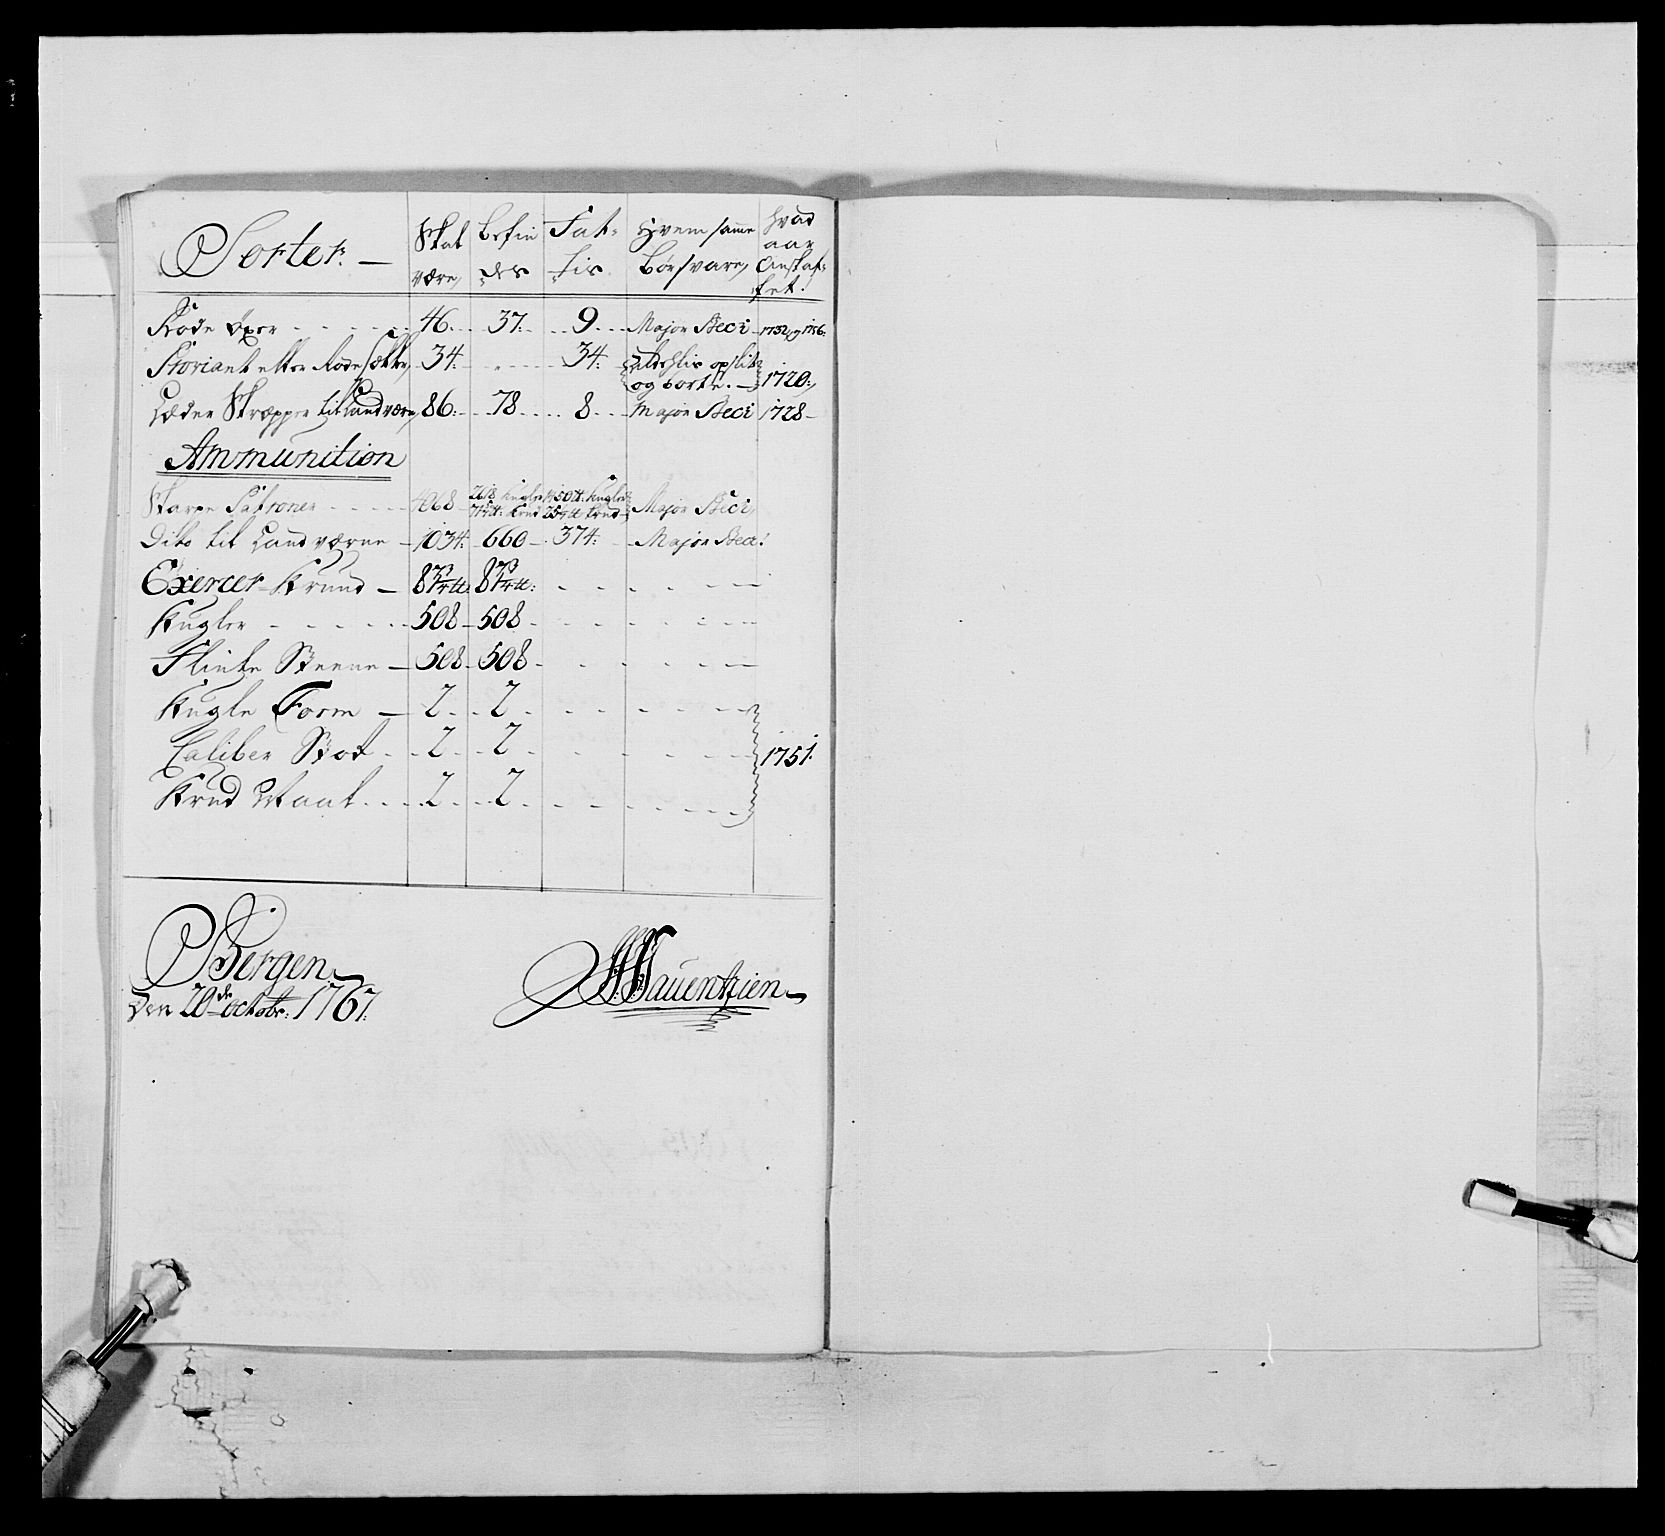 Sorter. Skal være Befin des Fat- tis Hvem samme bør svare Hvad aar Anskaf- fet.
Rode Öxer 46. 37. 9 Major Beck 1752 og 1756.
Proviant eller Rode Sække 34. 34. Aldeslis opslit og borte. 1720.
Læder Skræpper til Landværn 86. 78 8 Major Beck 1728
Ammunition
Skarpe Patroner 4068 Major Beck
Dito til Landværne 1034. 660 374. Major Beck
Exercer Krund
Kugler 508 508
Flinte Steene 508 508
Kugle Form 2 2
Caliber Stok 2 2 1751.
Krud Maal 2 2
Bergen
Den 20de octobr: 1767.
Tauentzien